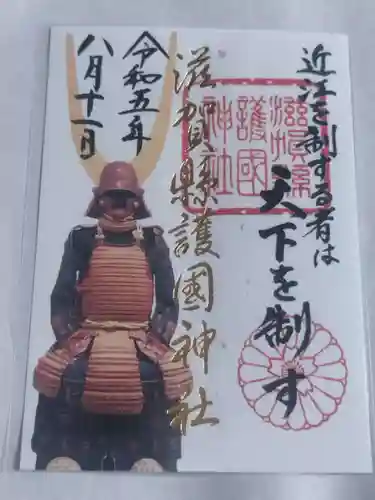 近江を制する者は
天下を制す
滋賀縣
護國
神社
滋賀縣護國神社
令和五年
八月十一日